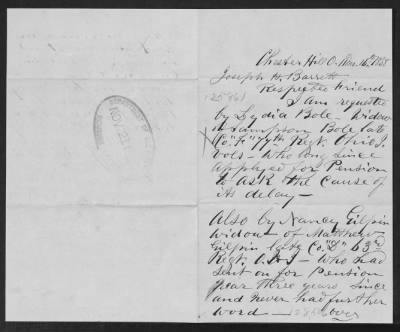 Chester Hill O. Nov. 16th 1868
Joseph H. Barrett
Respected Friend
125861
I am requested
by Lydia Bole - Widow
of Sampson Bole late
Co. "F" 77th Regt. Ohio
vols - who long since
applyed for Pension
to ask the cause of
its delay -
Also by Nancy Gilpin
widow of Matthew
Gilpin late Co. "D" 63rd
Regt. - who had
sent on for Pension
near three years since
and never had further
word - over
NOV 21